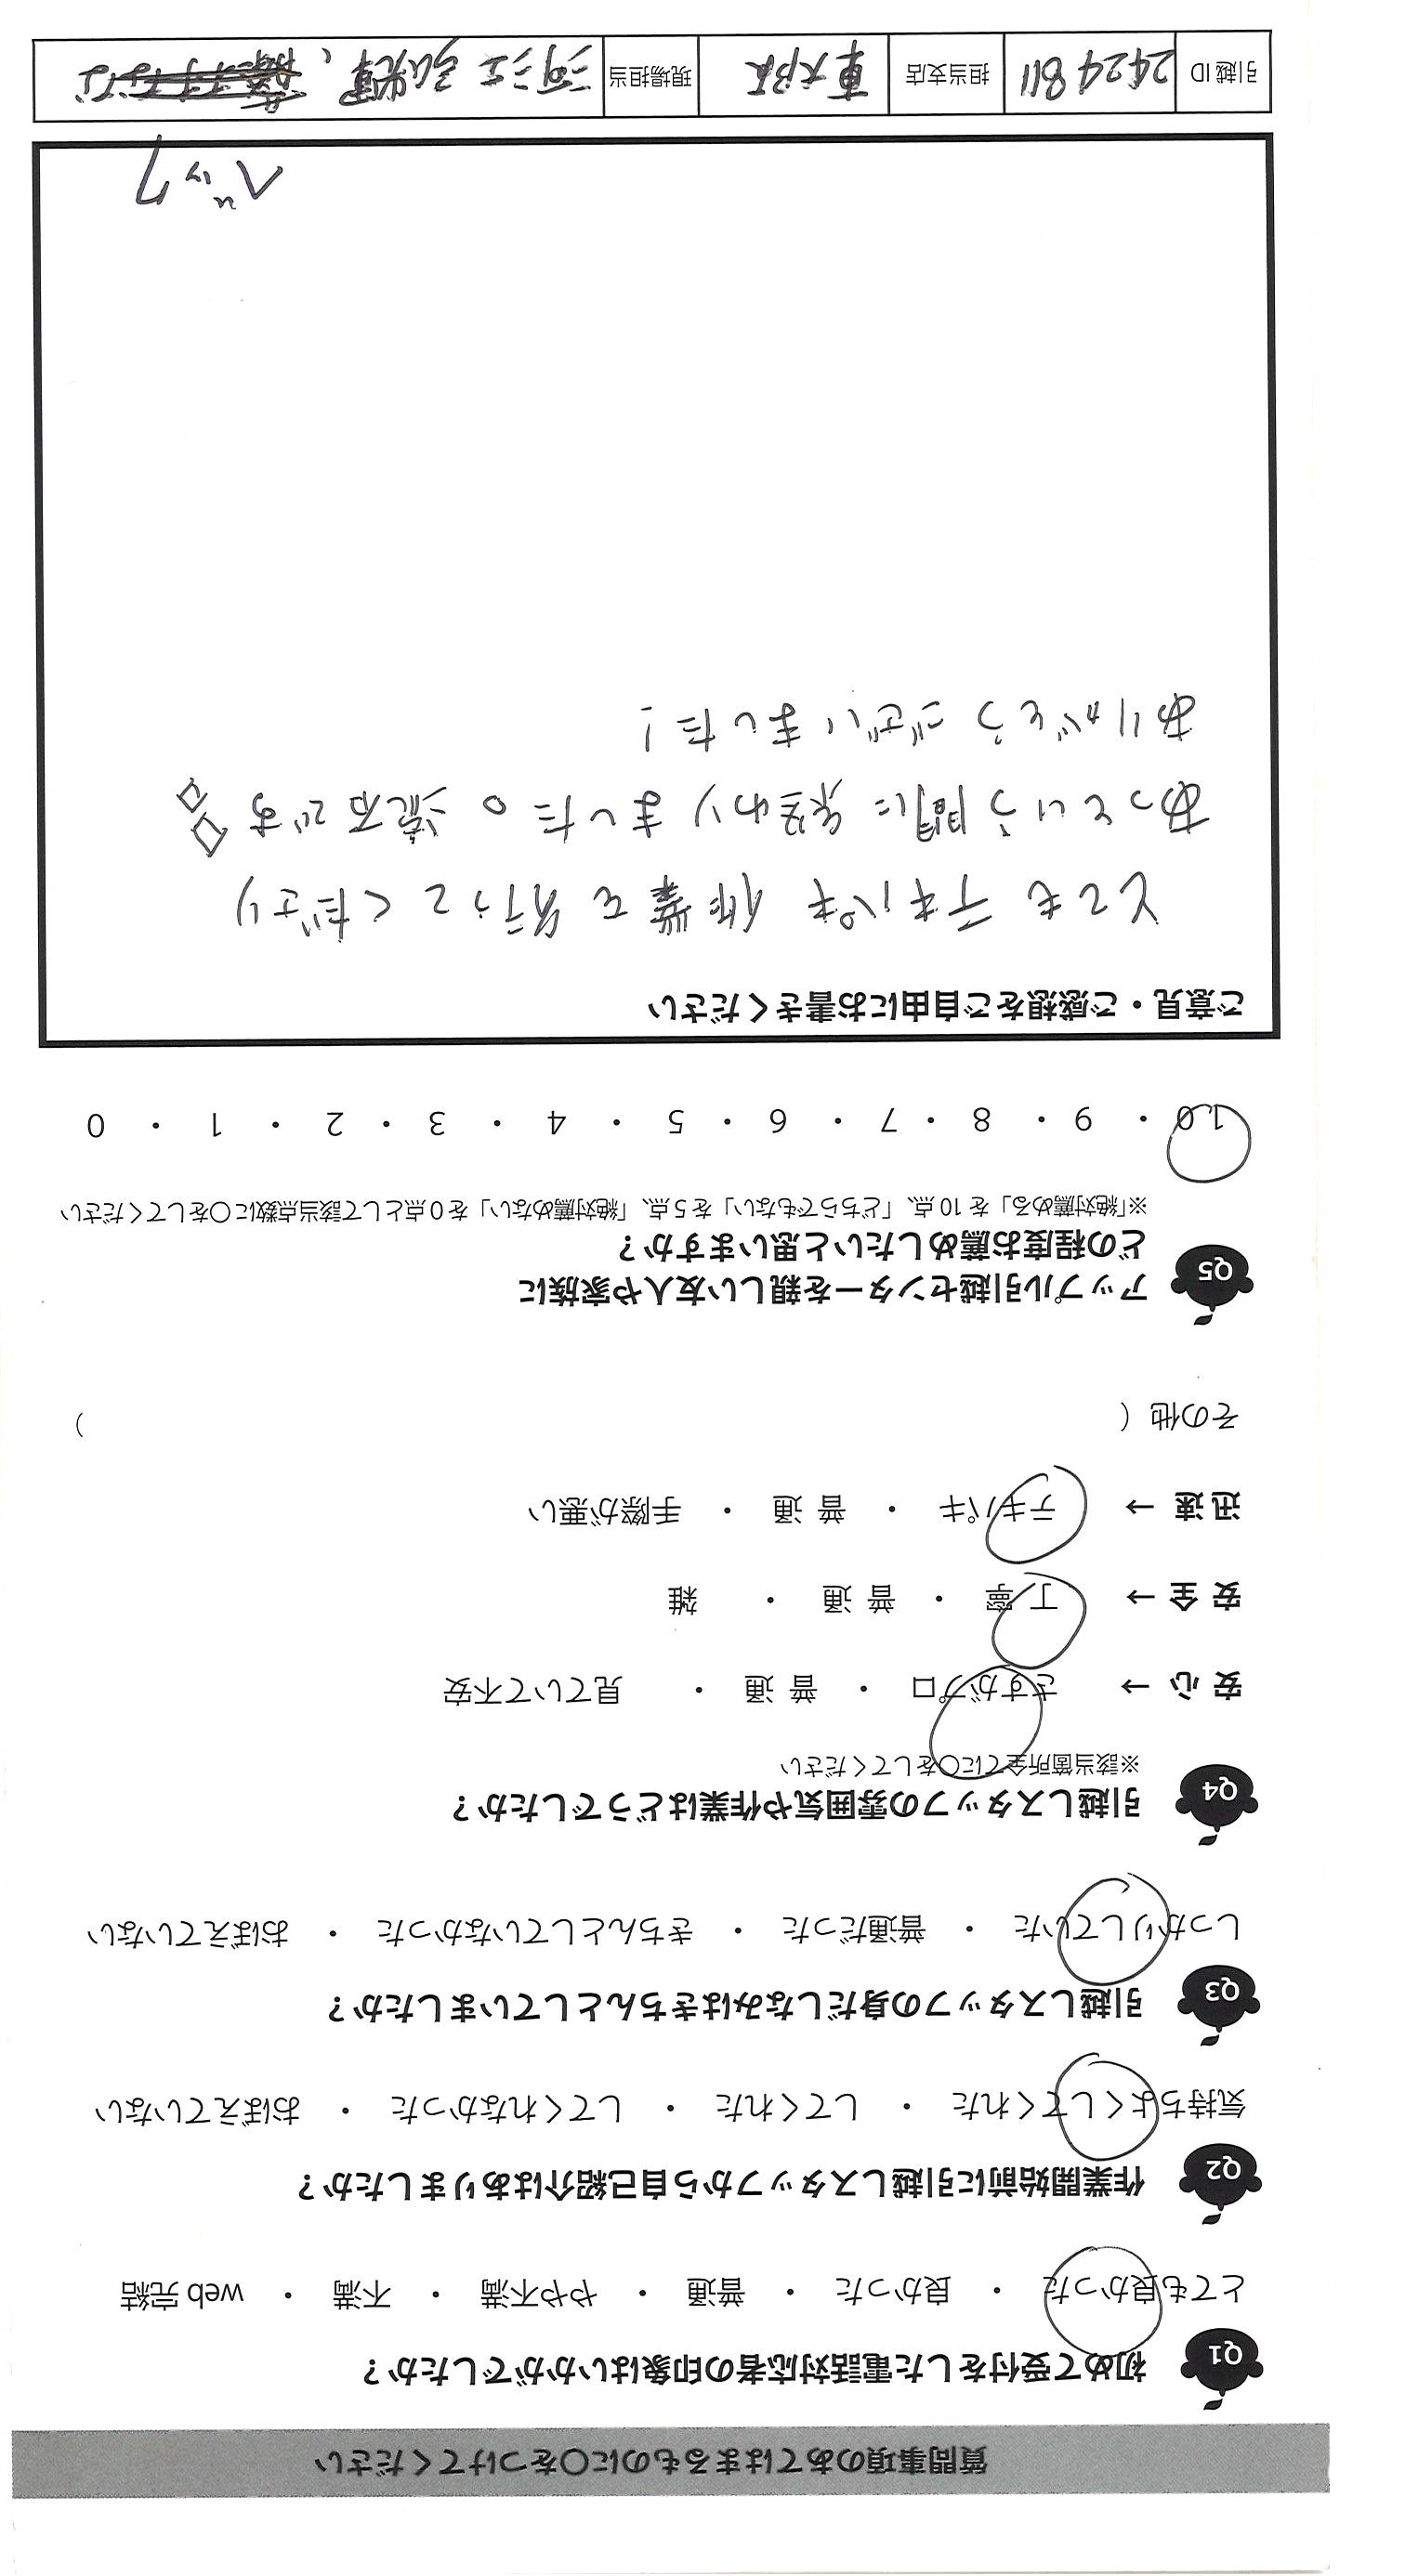 質問事項のあてはまるものに○をつけてください
Q1 初めて受付をした電話対応者の印象はいかがでしたか？
とても良かった ・ 良かった ・ 普通 ・ やや不満 ・ 不満 ・ web 完結
Q2 作業開始前に引越しスタッフから自己紹介はありましたか？
気持ちよくしてくれた ・ してくれた ・ してくれなかった ・ おぼえていない
Q3 引越しスタッフの身だしなみはきちんとしていましたか？
しっかりしていた ・ 普通だった ・ きちんとしていなかった ・ おぼえていない
Q4 引越しスタッフの雰囲気や作業はどうでしたか？
※該当箇所全てに○をしてください
安 心 → さすがプロ ・ 普 通 ・ 見ていて不安
安 全 → 丁 寧 ・ 普 通 ・ 雑
迅 速 → テキパキ ・ 普 通 ・ 手際が悪い
その他（ ）
Q5 アップル引越センターを親しい友人や家族に
どの程度お薦めしたいと思いますか？
※「絶対薦める」を 10 点、「どちらでもない」を 5 点、「絶対薦めない」を 0 点として該当点数に○をしてください
10 ・ 9 ・ 8 ・ 7 ・ 6 ・ 5 ・ 4 ・ 3 ・ 2 ・ 1 ・ 0
ご意見・ご感想をご自由にお書きください
とても テキパキ 作業を行ってくださり
あっという間に終わりました。流石です
ありがとうございました！
引越 ID 2424811 担当支店 東大阪 現場担当 河江